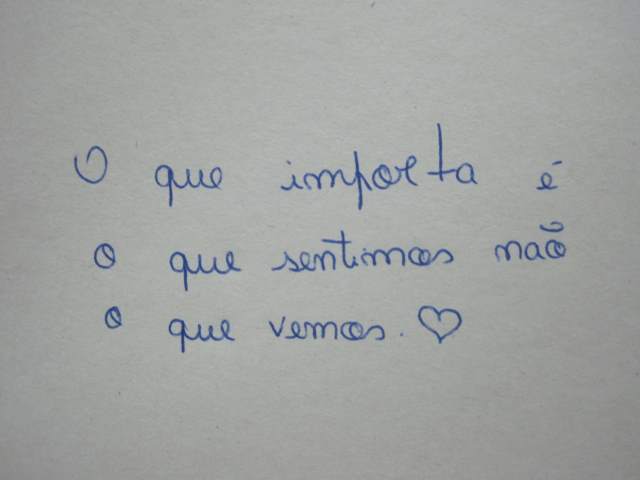 O que importa é
o que sentimos não
o que vemos. ♡